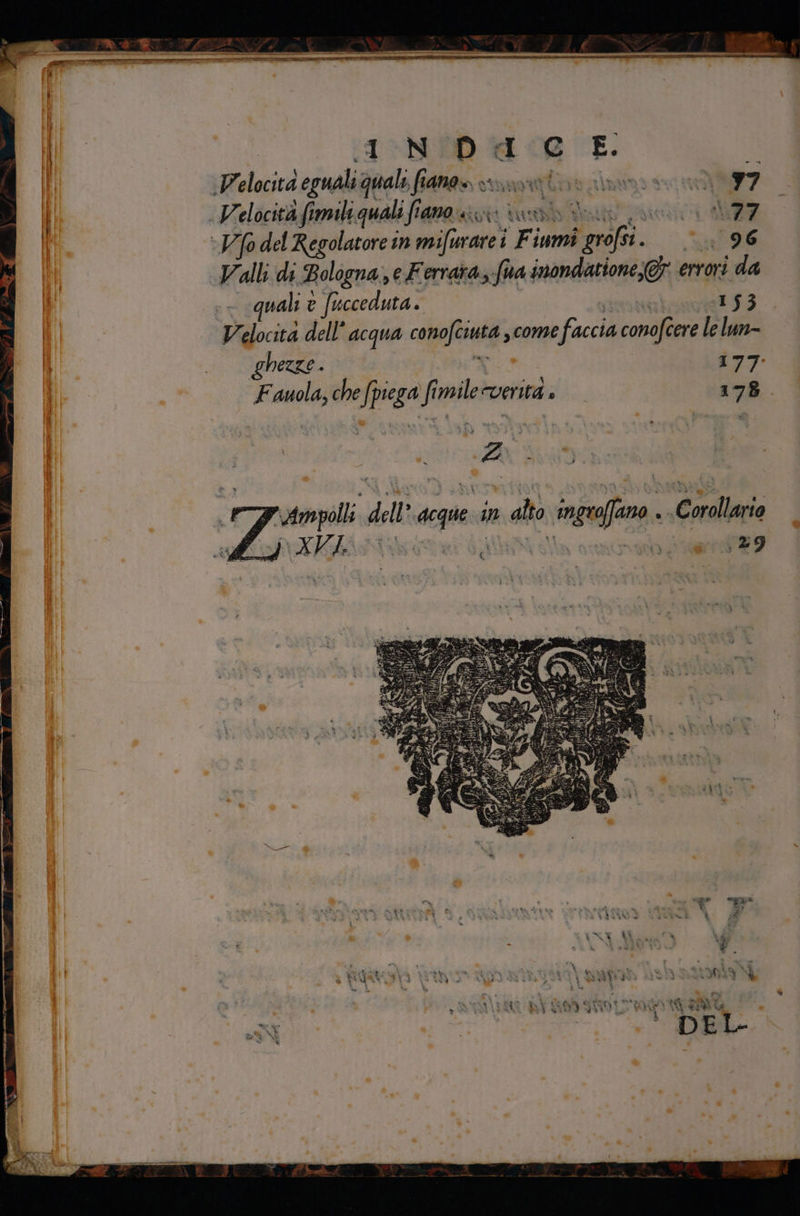 INDICE.
Velocità eguali quali siano. 77
Velocità simili quali siano 77
Vso del Regolatore in misurare i Fiumi grossi. 96
Valli di Bologna, e Ferrara, sua inondatione, & errori da
quali è succeduta. 153
Velocità dell' acqua conosciuta, come faccia conoscere le lun-
ghezze. 177
Fauola, che spiega simile verità. 178
Z
ZAmpolli dell' acque in alto ingrossano. Corollario
XVI. 29
DEL-